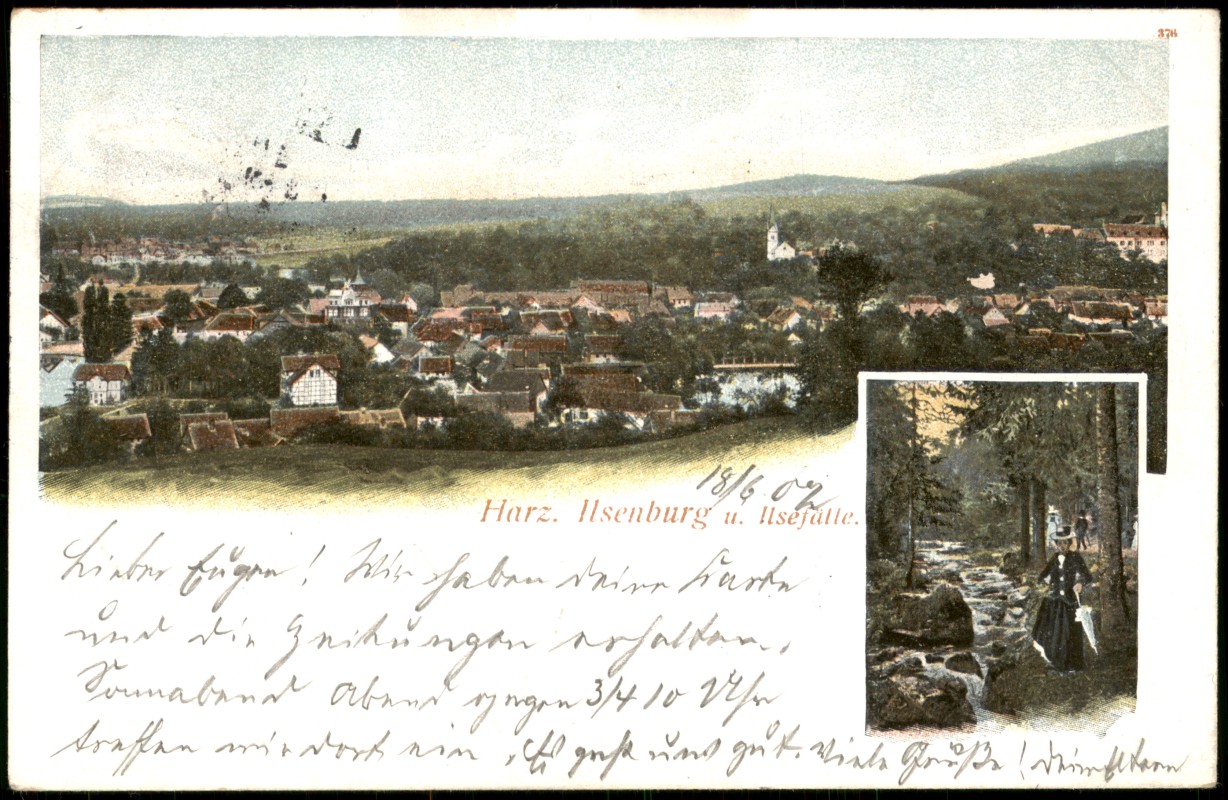 376
18/6 02
Harz. Ilsenburg u. Ilsefälle.
Lieber Eugen! Wir haben deine Karte
und die Zeitungen erhalten.
Sonnabend Abend gegen 3/4 10 Uhr
treffen wir dort ein. Es geht uns gut. Viele Grüße! Deine Eltern